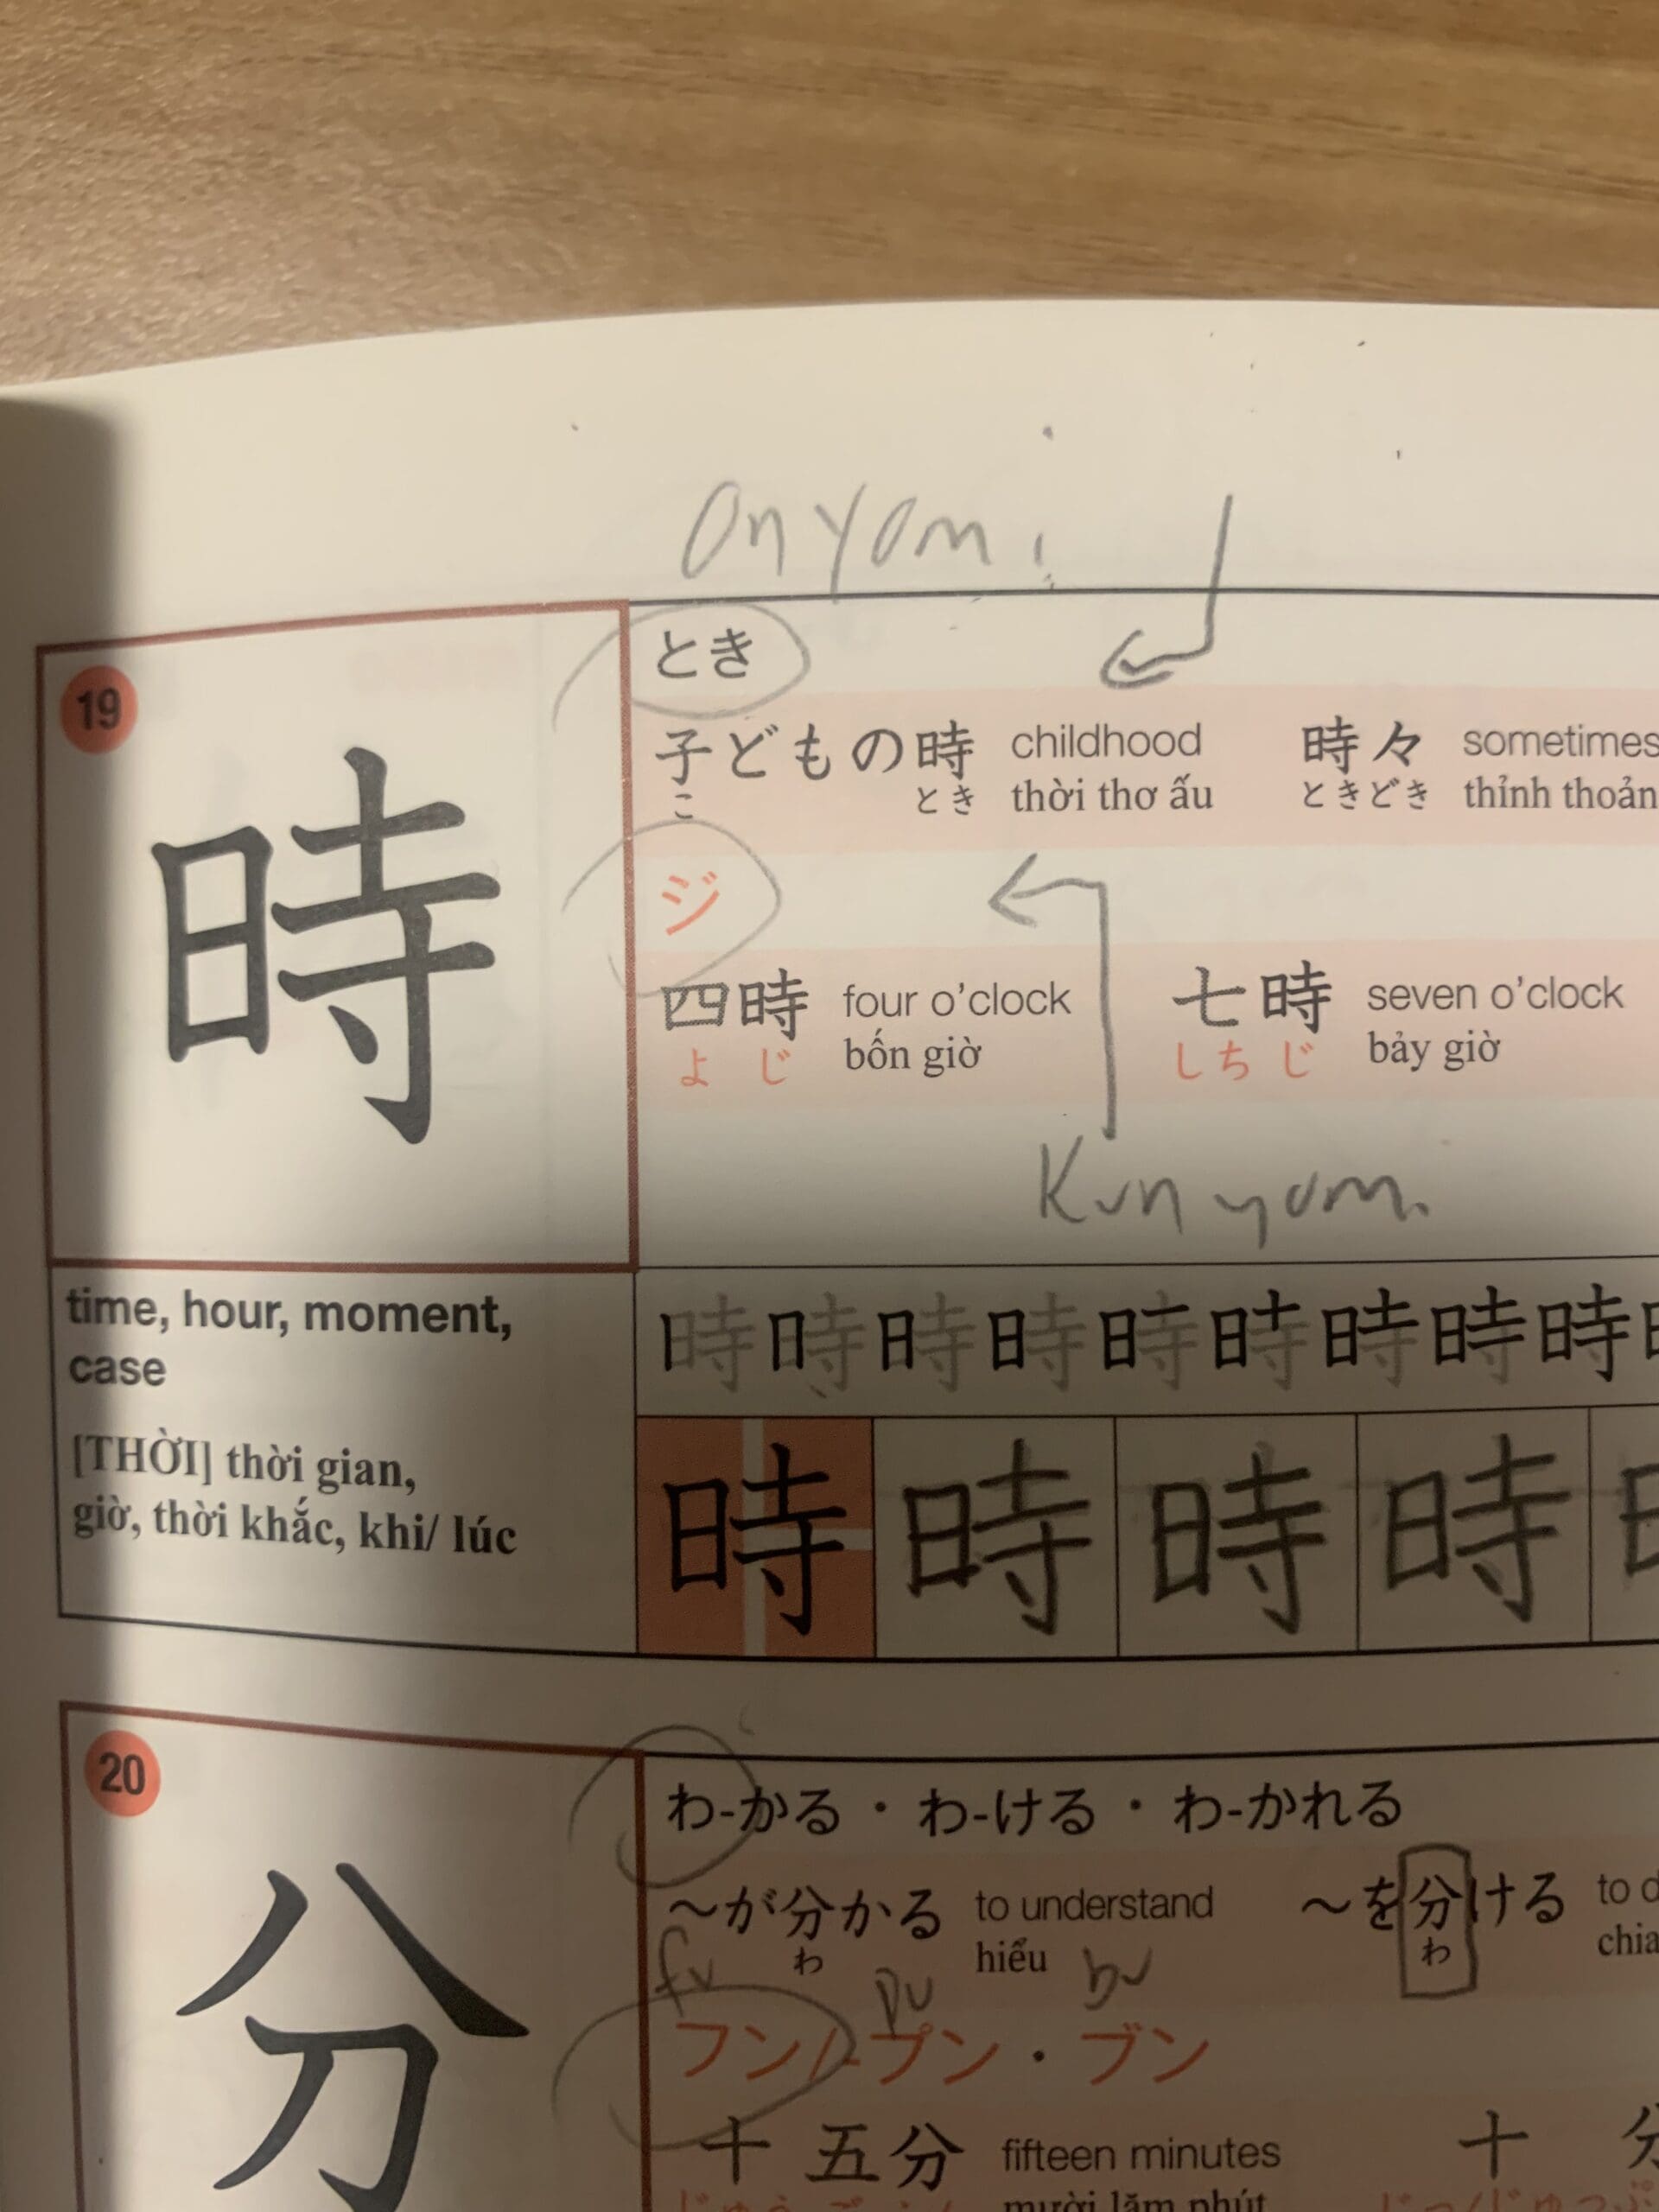 Onyomi
19
時
とき
子どもの時 childhood 時々 sometimes
こ とき thời thơ ấu ときどき thỉnh thoản
ジ
四時 four o'clock 七時 seven o'clock
よ じ bốn giờ しち じ bảy giờ
Kunyomi
time, hour, moment,
case
[THỜI] thời gian,
giờ, thời khắc, khi/ lúc
時 時 時 時 時 時 時 時 時
時 時 時 時
20
分
わ-かる・わ-ける・わ-かれる
～が分かる to understand ～を分ける to d
わ hiểu わ chia
fu pu bu
フン/-プン・ブン
十五分 fifteen minutes 十 分
mười lăm phút